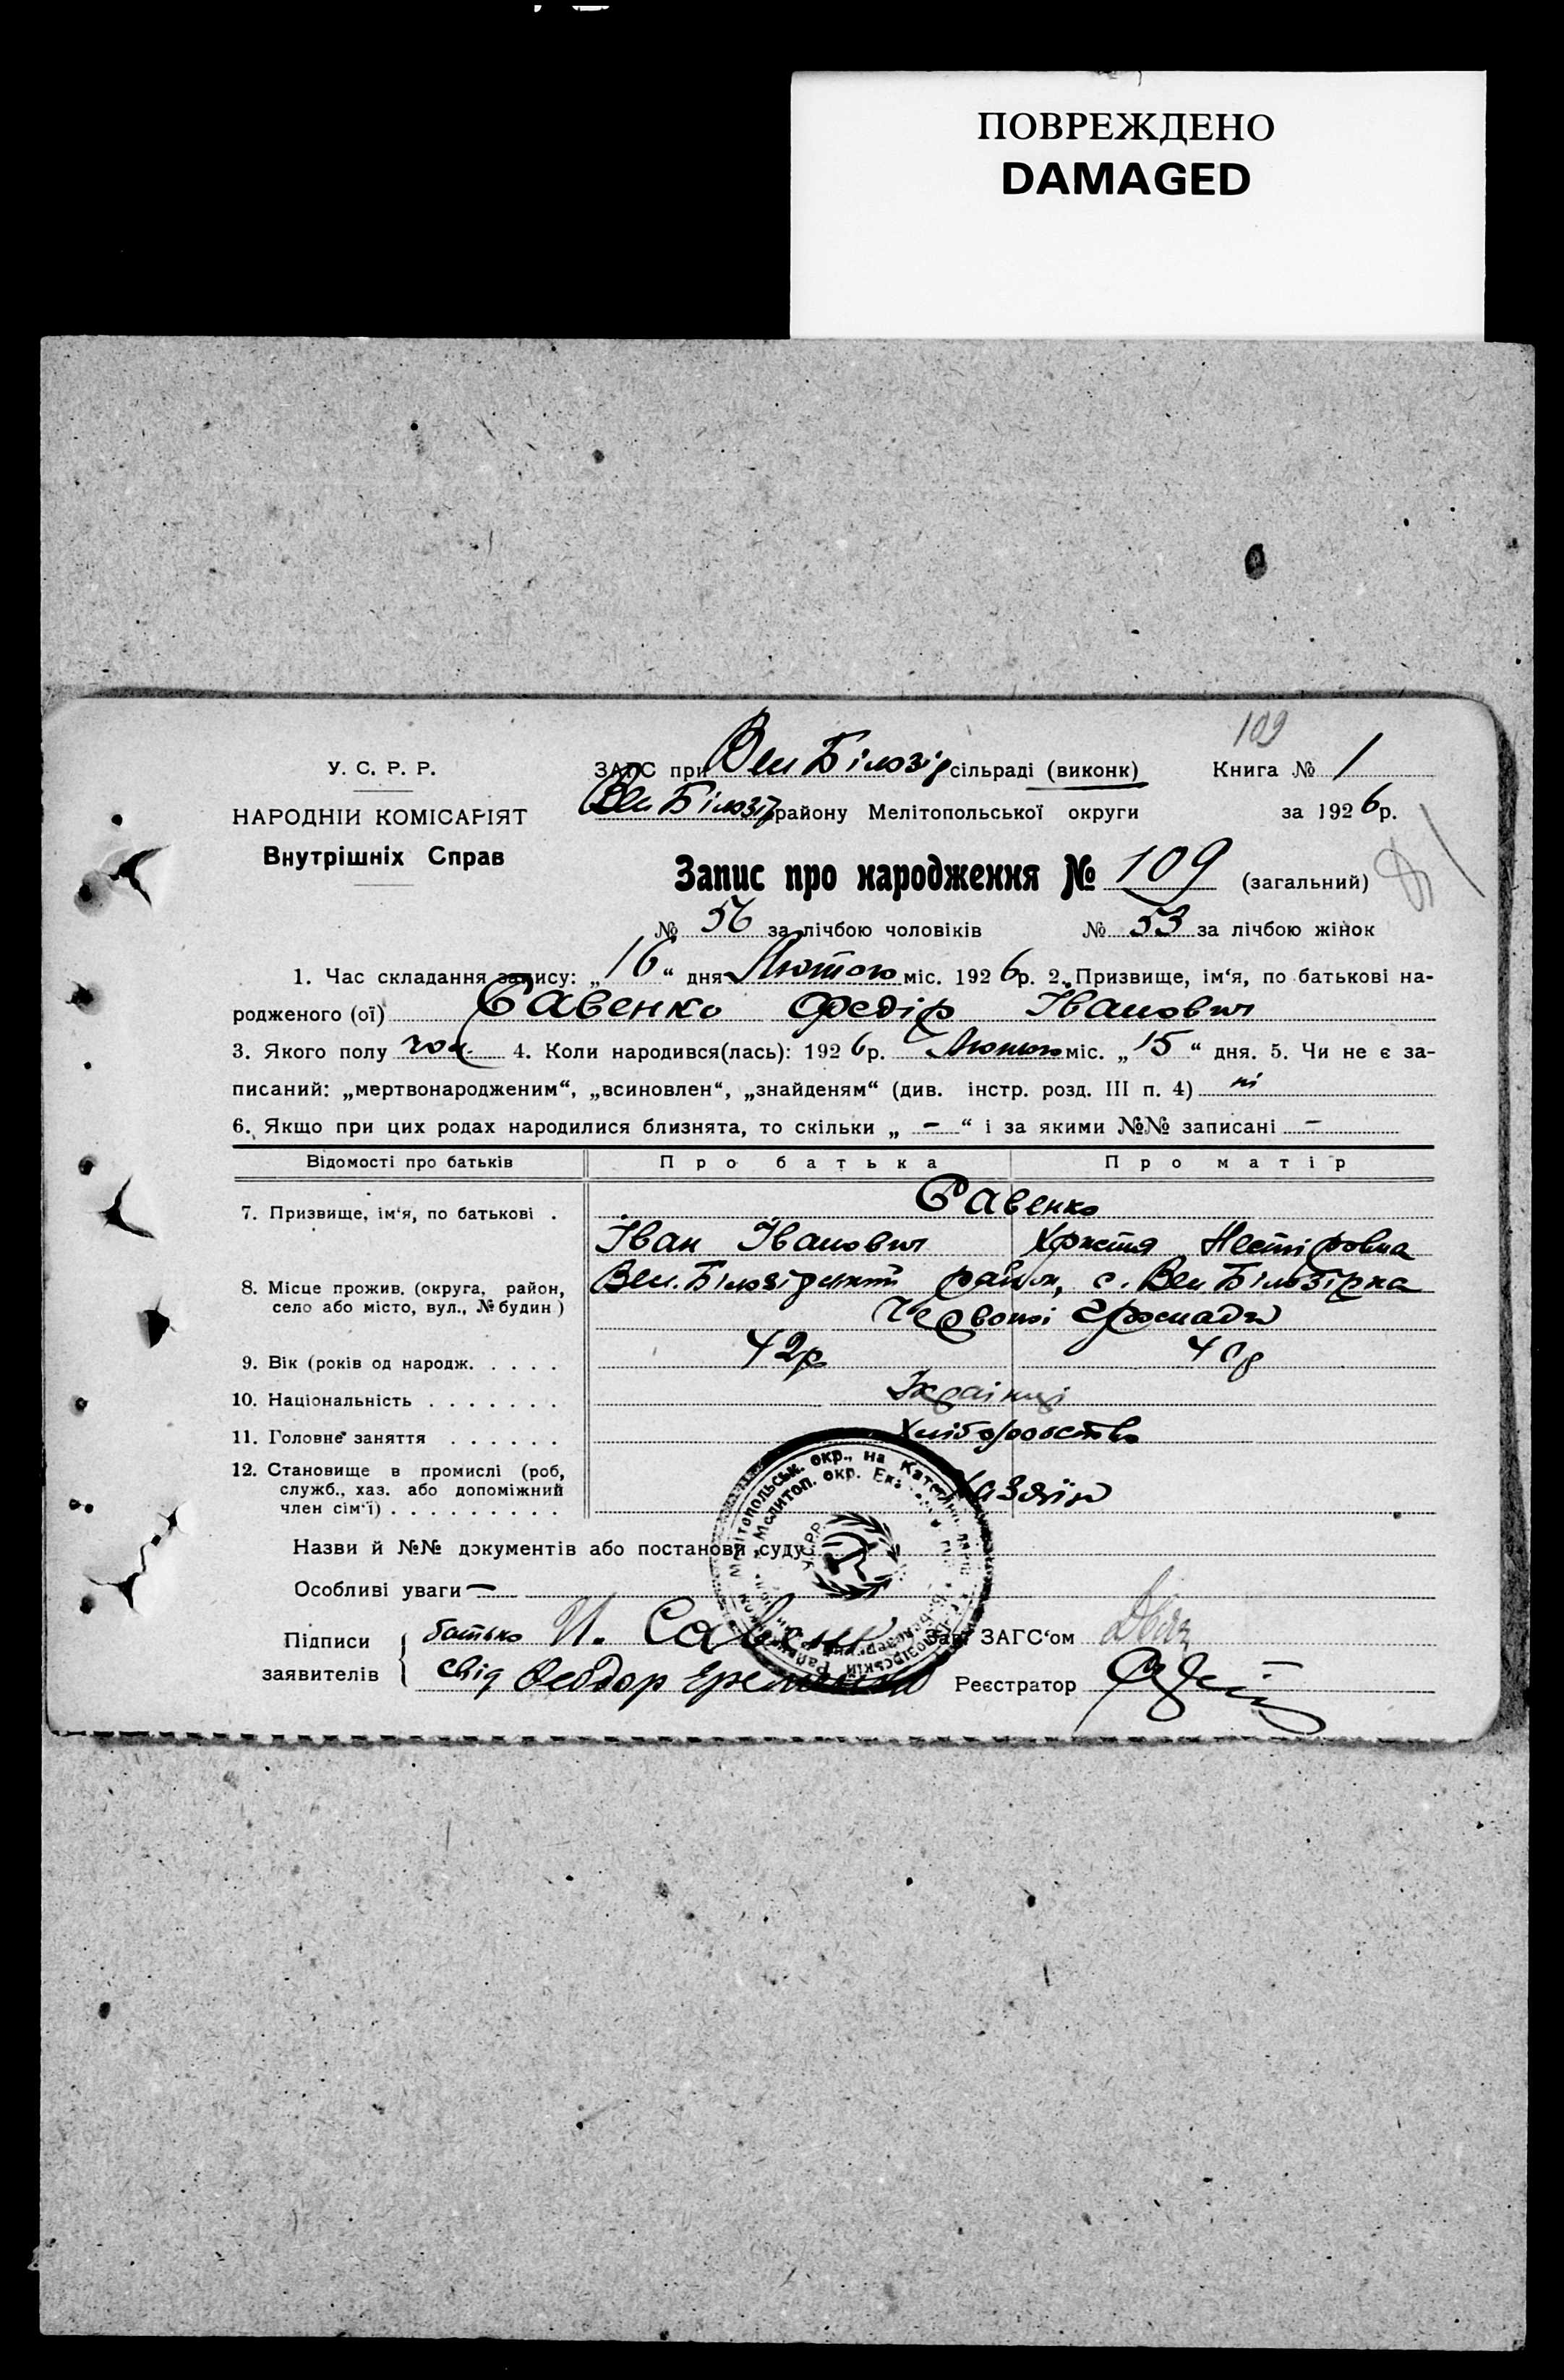 ПОВРЕЖДЕНО
DAMAGED
109
У. С. Р. Р.
НАРОДНІЙ КОМІСАРІЯТ
Внутрішніх Справ
ЗАГС при Вел Білозір сільраді (виконк)
Книга № 1
Вел Білозір району Мелітопольської округи
за 1926р.
Запис про народження № 109 (загальний)
№ 56 за лічбою чоловіків № 53 за лічбою жінок
1. Час складання запису: „16“ дня Лютого міс. 1926р. 2. Призвище, ім‘я, по батькові на-
родженого (ої) Савенко Федір Іванович
3. Якого полу чол. 4. Коли народився(лась): 1926р. Лютого міс. „15“ дня. 5. Чи не є за-
писаний: „мертвонародженим“, „всиновлен“, „знайденям“ (див. інстр. розд. III п. 4) ні
6. Якщо при цих родах народилися близнята, то скільки „ – “ і за якими №№ записані –
Відомості про батьків Про батька Про матір
7. Призвище, ім‘я, по батькові . Савенко
Іван Іванович Христя Нестіровна
8. Місце прожив. (округа, район, село або місто, вул., № будин) Вел. Білозірський район, с. Вел Білозірка
Червоної Громади
9. Вік (років од народж. . . . . 42р 40р
10. Національність . . . . . . . Українці
11. Головне заняття . . . . . . Хліборобство
12. Становище в промислі (роб, служб., хаз. або допоміжний член сім‘ї) . . . . . . . . . Хазяїн
Назви й №№ документів або постанови суду
Особливі уваги –
Підписи заявителів
батько И. Савенко
свід Феодор Еременко
Зав. ЗАГС‘ом
Реєстратор
У.С.Р.Р.